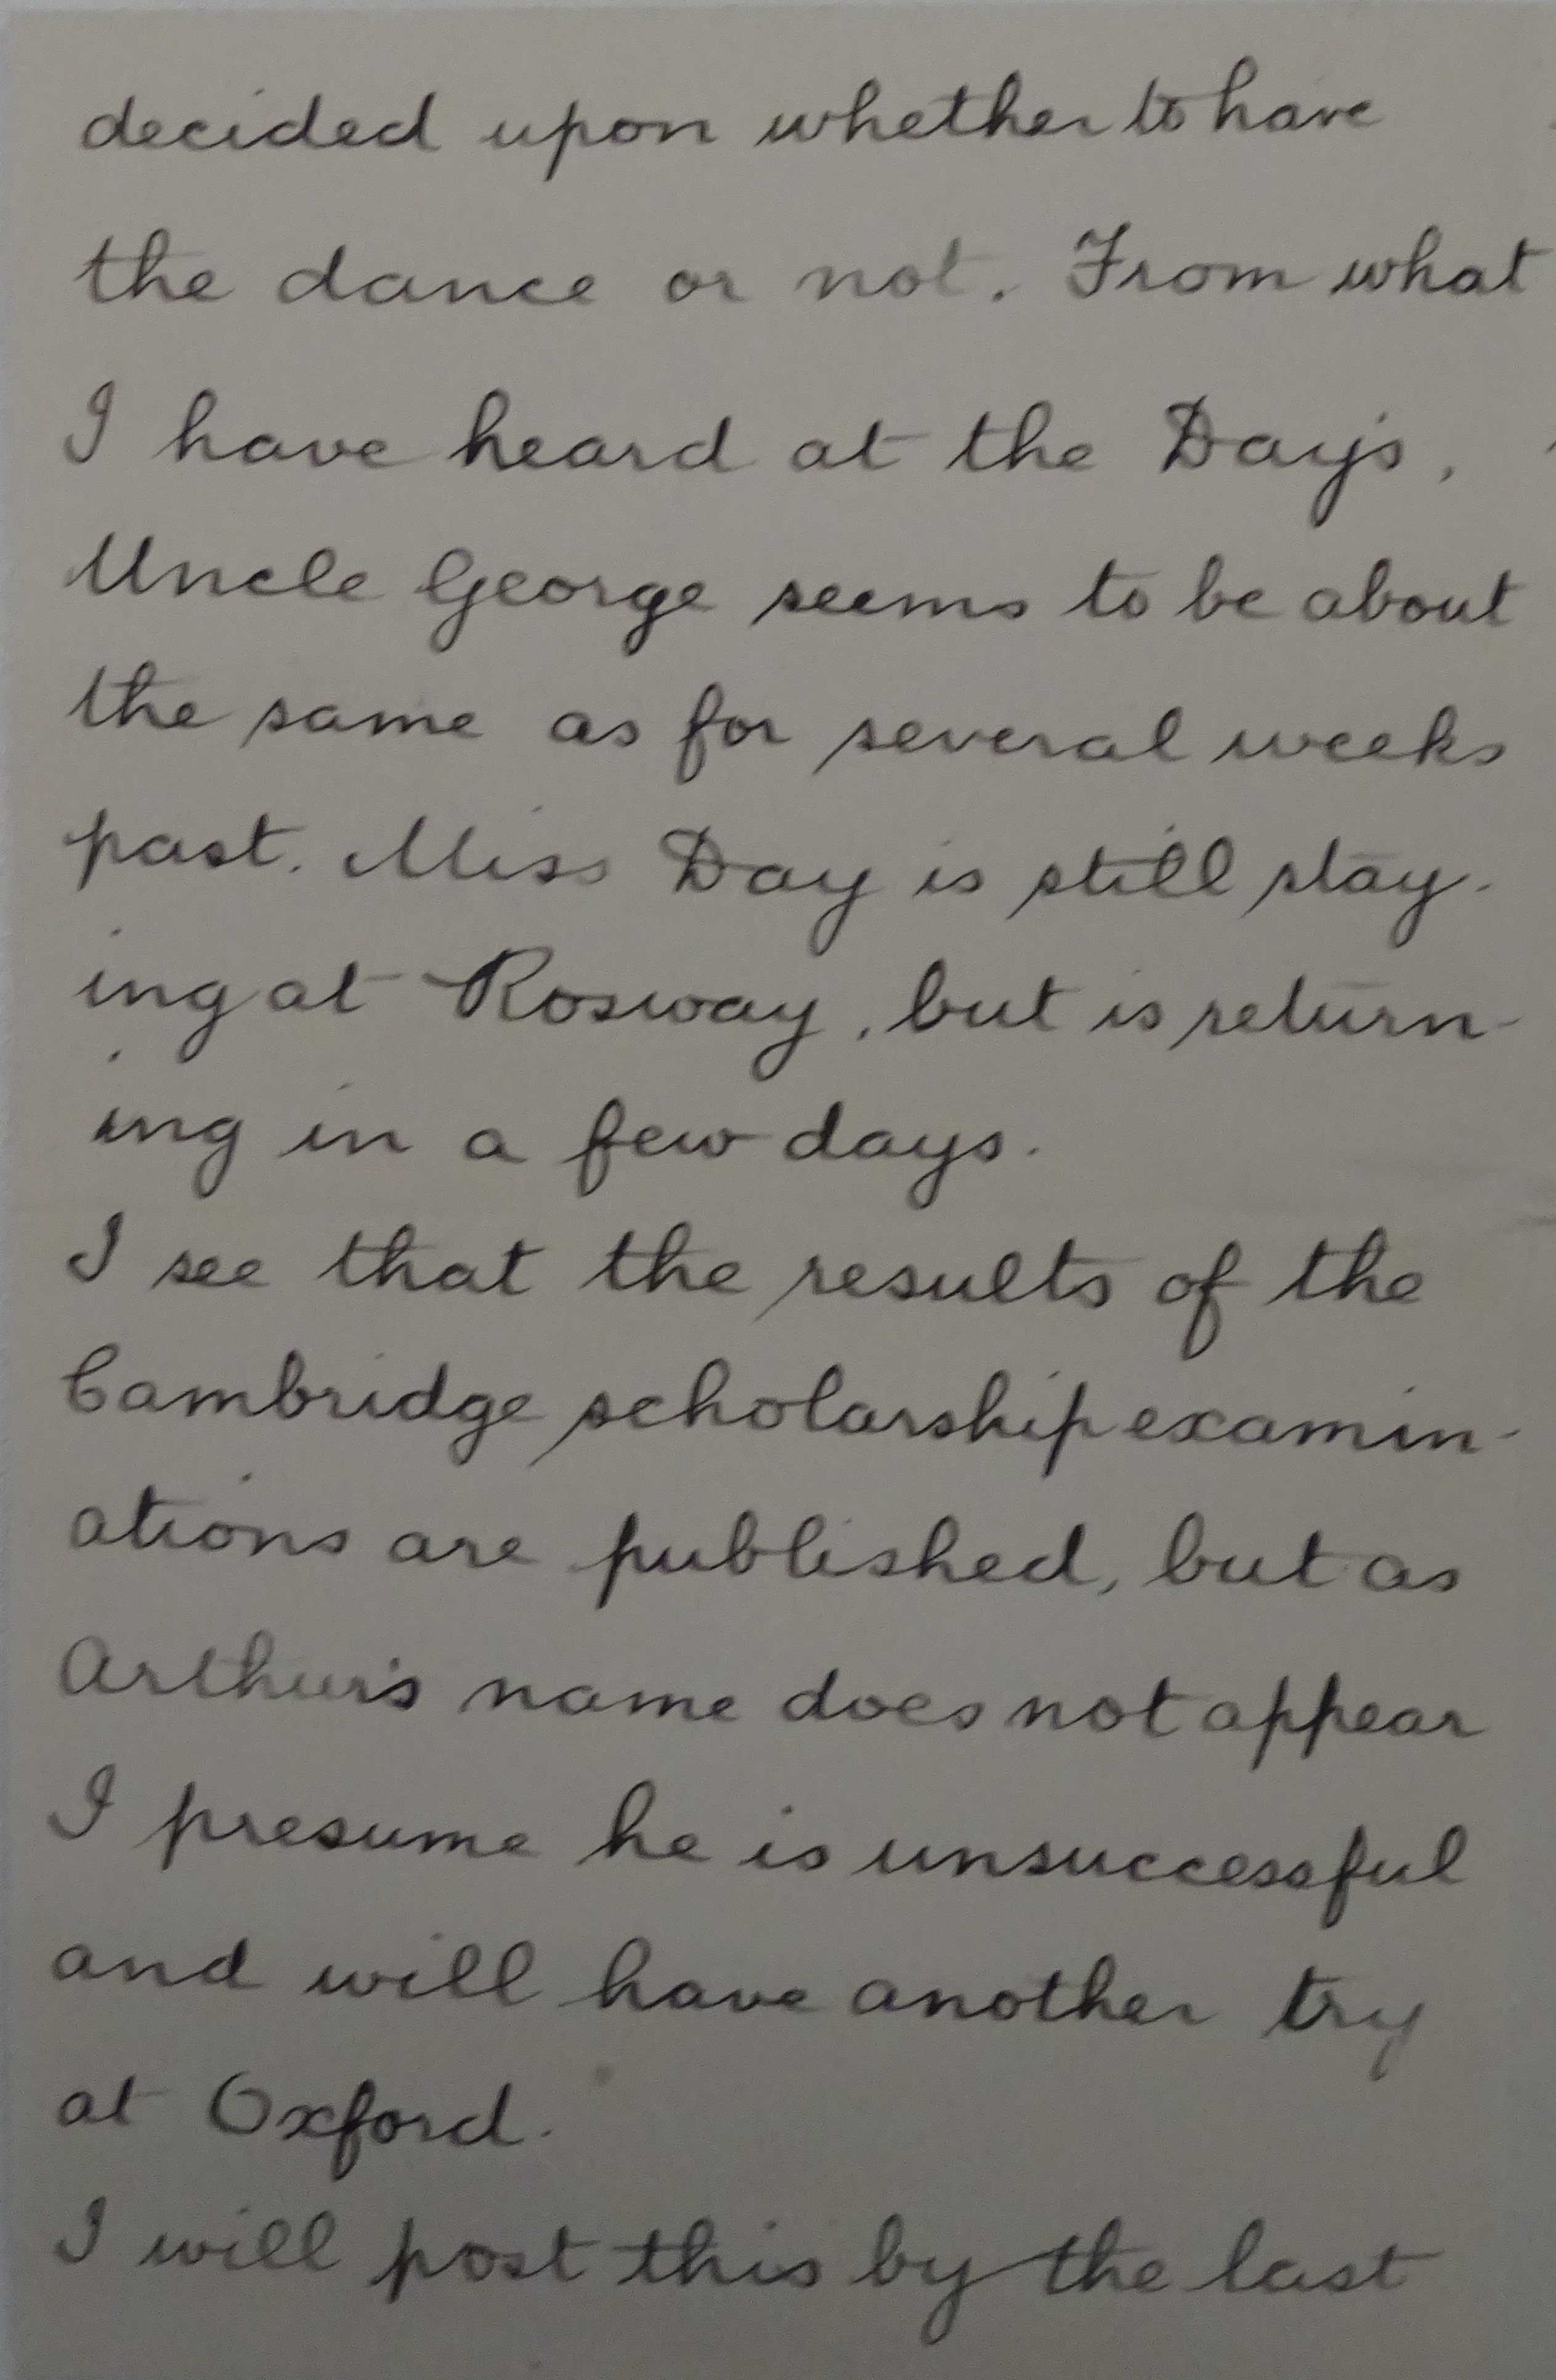 decided upon whether to have
the dance or not. From what
I have heard at the Day's,
Uncle George seems to be about
the same as for several weeks
past. Miss Day is still stay-
ing at Rosway, but is return-
ing in a few days.
I see that the results of the
Cambridge scholarship examin-
ations are published, but as
Arthur's name does not appear
I presume he is unsuccessful
and will have another try
at Oxford.
I will post this by the last